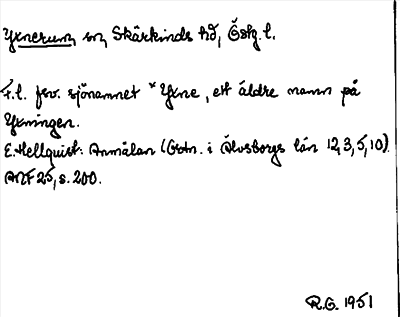 Yxnerum, sn, Skärkinds hd, Östg.l.
F.l. fsv. sjönamnet *Yxne, ett äldre namn på
Yxningen.
E. Hellquist: Anmälan (Ortn. i Älvsborgs län 12, 3, 5, 10).
ANF 25, s. 200.
R.G. 1951